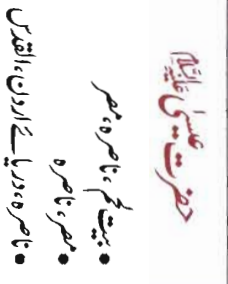 حضرت عیسیٰ علیہ السلام
• بیت لحم، ناصرہ، مصر
• مصر، ناصرہ
• ناصرہ، دریائے اردن، القدس